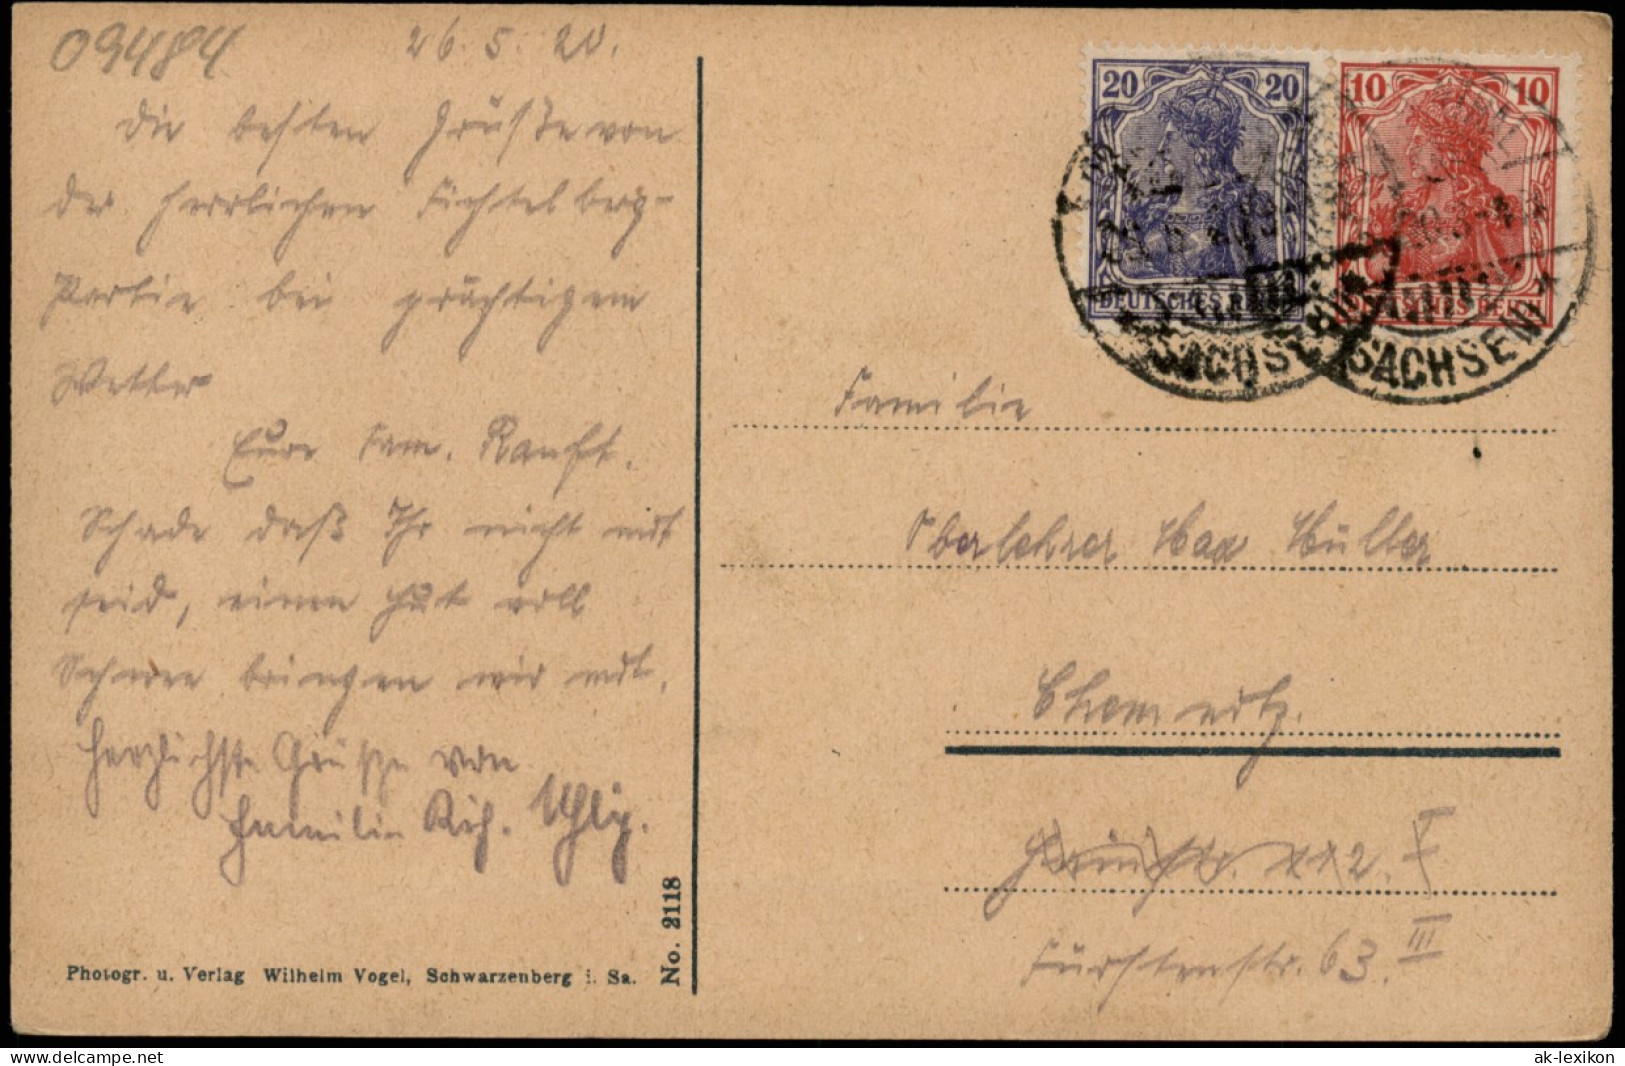 09484
26.5.20.
Die besten Grüße von
der herrlichen Fichtelberg-
Partie bei prächtigem
Wetter
Eure Fam. Ranft.
Schade daß Ihr nicht mit
seid, einen Hut voll
Schnee bringen wir mit.
Herzlichste Grüße von
Familie Rich. Uhlig.
Photogr. u. Verlag Wilhelm Vogel, Schwarzenberg i. Sa.
No. 2118
20 20
DEUTSCHES REICH
10 10
DEUTSCHES REICH
SACHSEN
SACHSEN
Familie
Oberlehrer Max Müller
Chemnitz.
Fürstenstr. 63. III